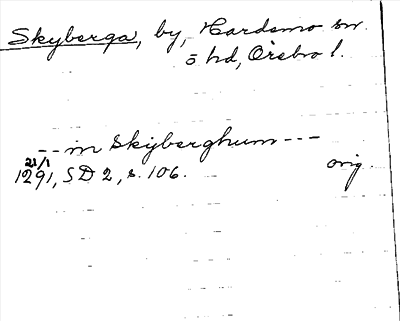 Skyberga, by, Hardemo sn.
ö hd, Örebro l.
-- in Skyberghum ---
21/1
1291, SD 2, s. 106. orig.